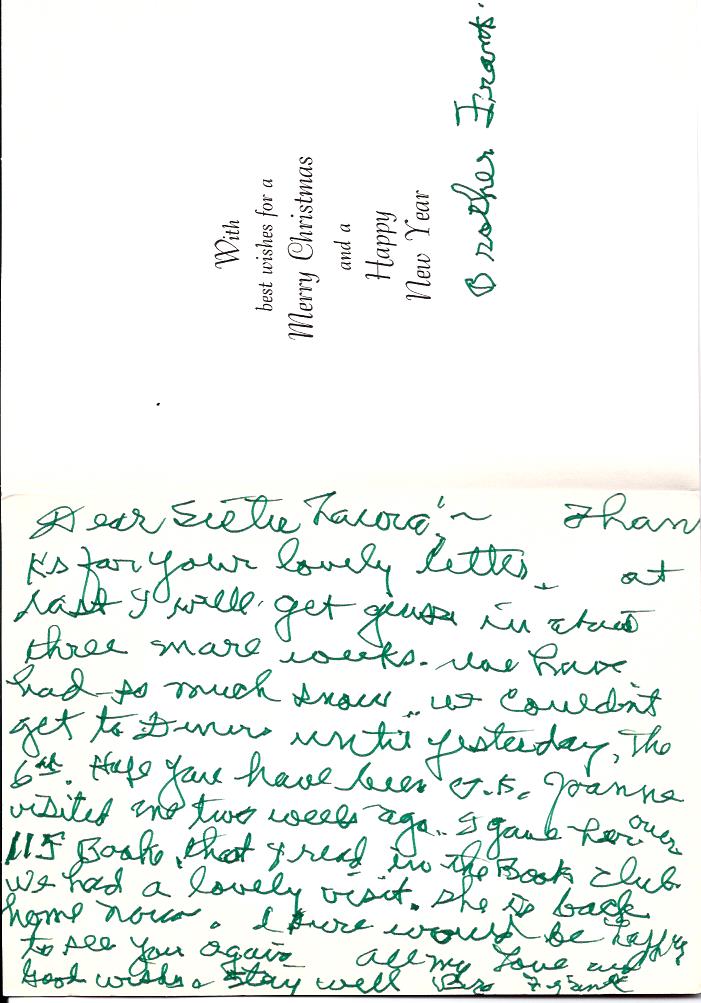 With
best wishes for a
Merry Christmas
and a
Happy
New Year
Brother Frank.
Dear Sister :~ Than
ks for your lovely letter. at
last I will get in about
three more weeks. We have
had so much snow we couldn't
get to until yesterday, the
6th. Hope you have been O.K. Joanne
visited me two weeks ago. I gave her over
115 Books, that I read in the Book club
We had a lovely visit. she is back
home now. I sure would be happy
to see you again all my Love and
Good wishes Stay well Bro Frank